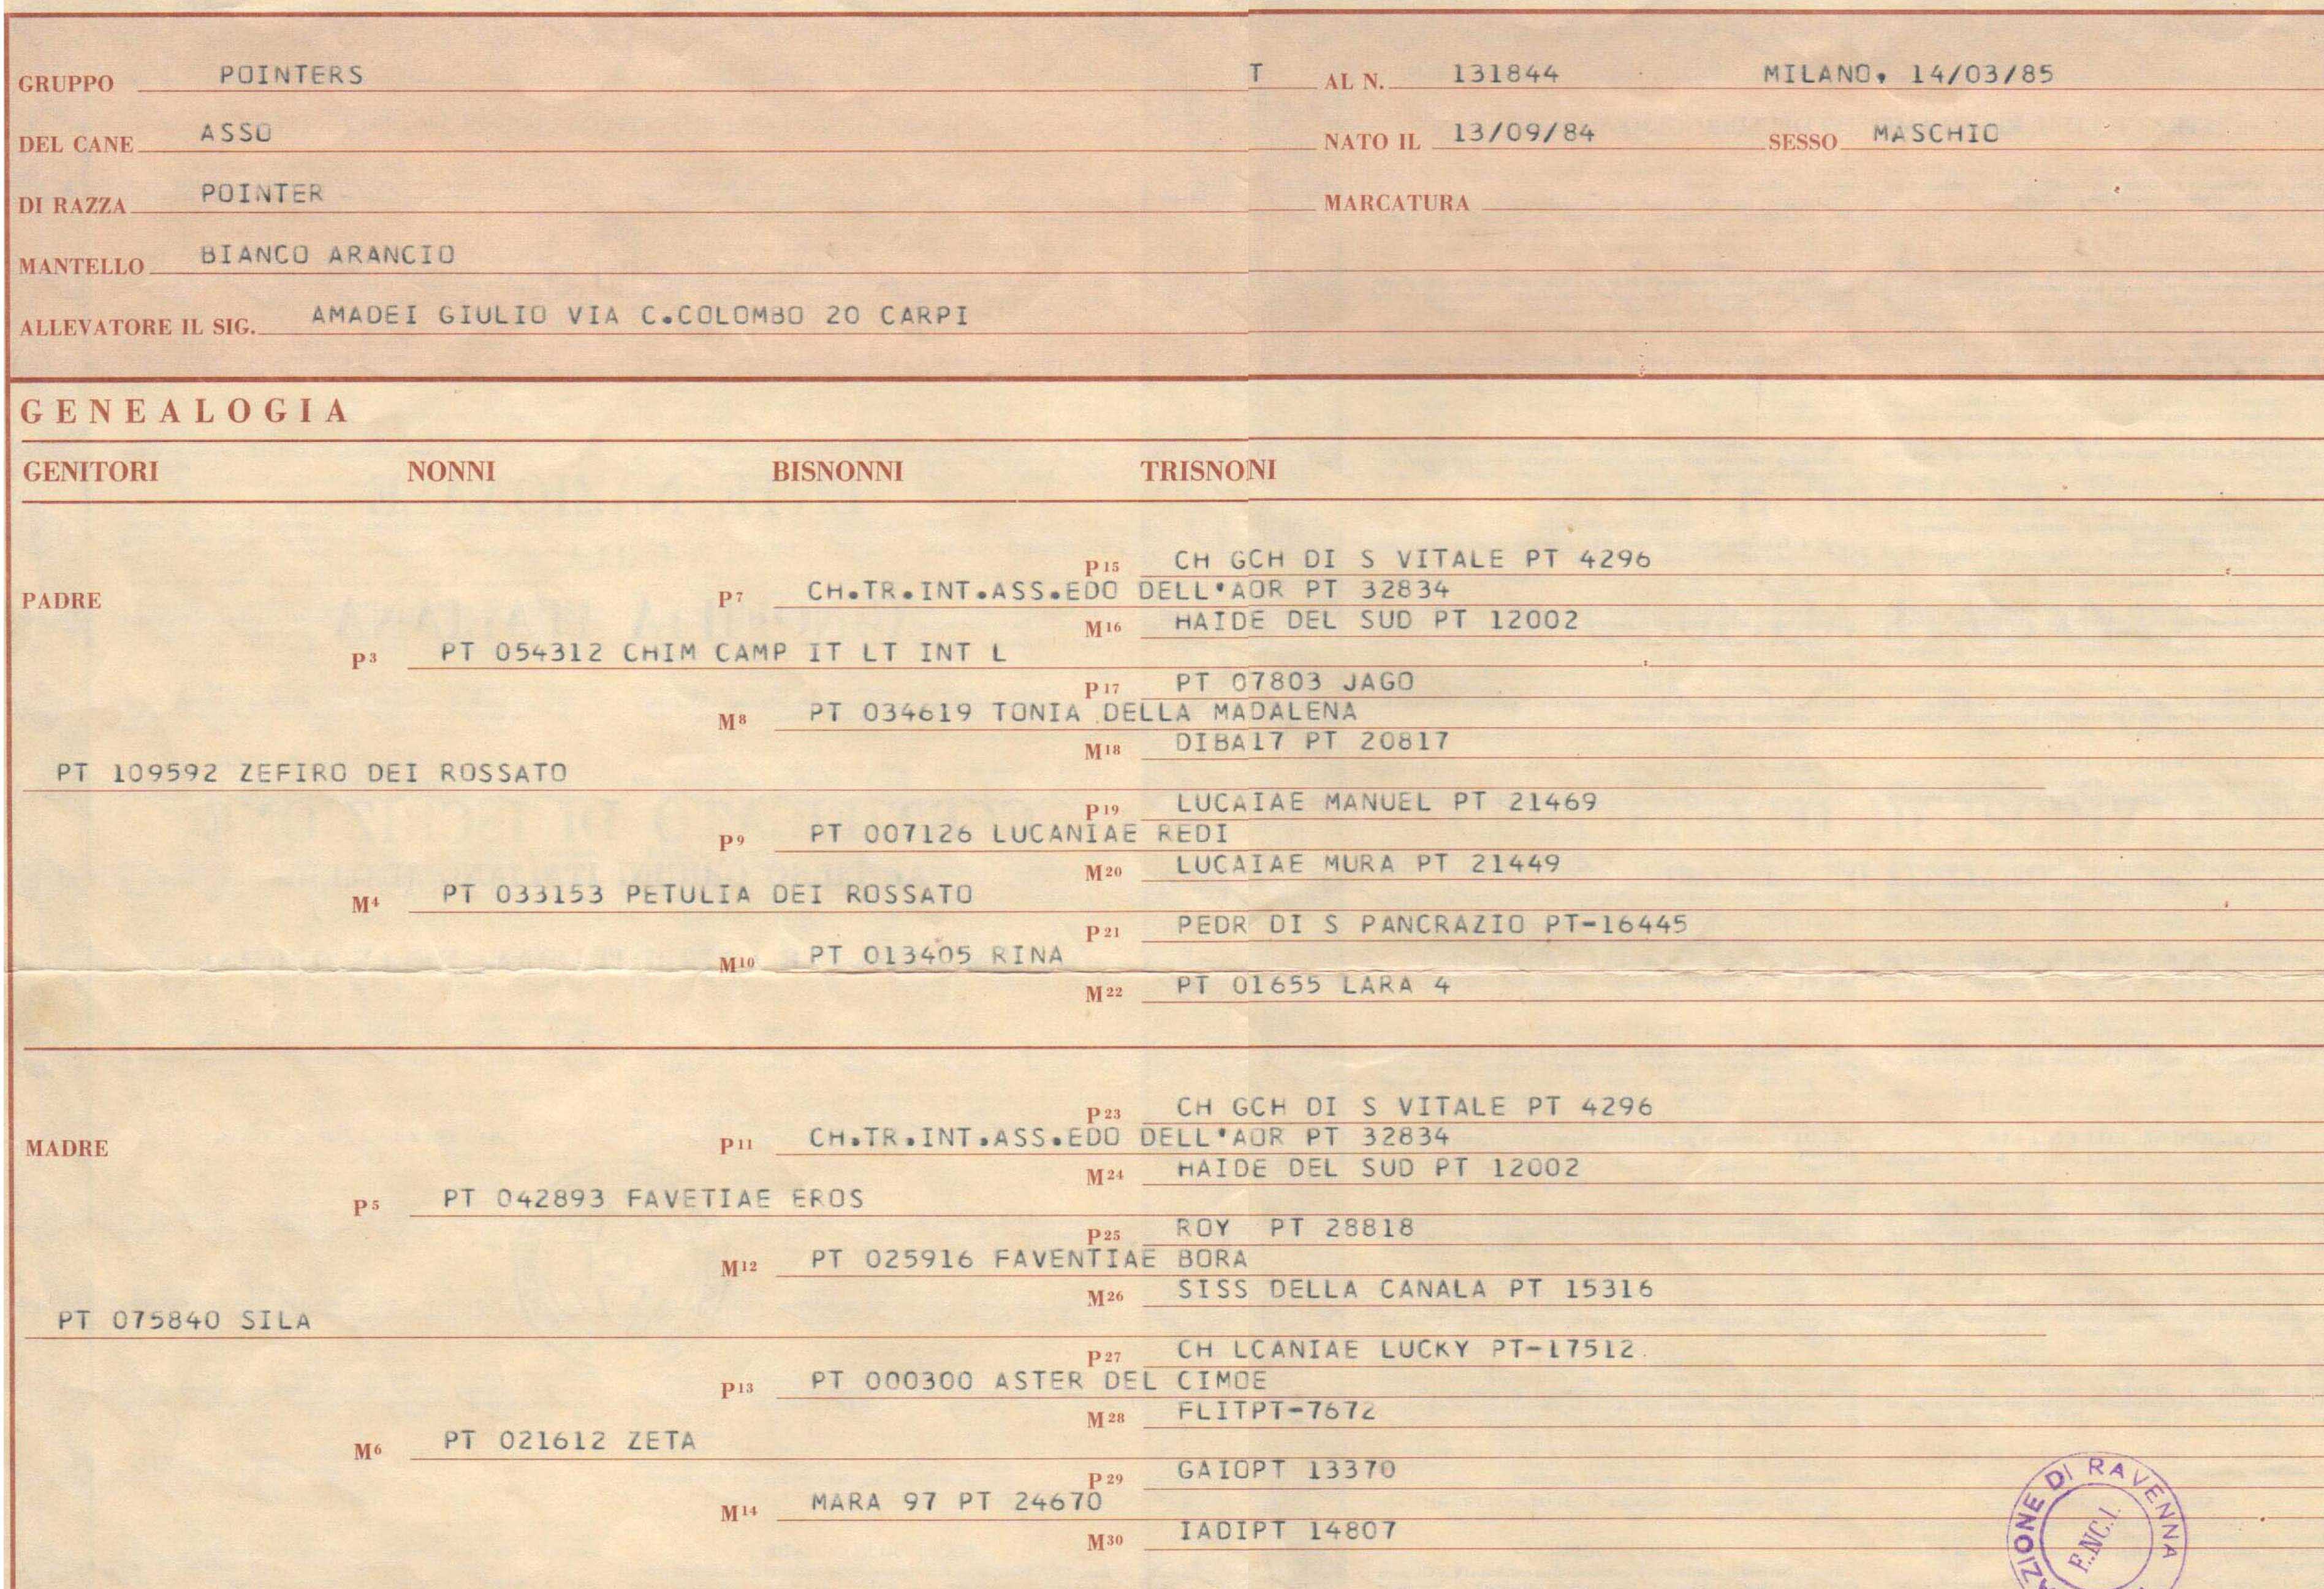 GRUPPO POINTERS T AL N. 131844 MILANO, 14/03/85
DEL CANE ASSO NATO IL 13/09/84 SESSO MASCHIO
DI RAZZA POINTER MARCATURA
MANTELLO BIANCO ARANCIO
ALLEVATORE IL SIG. AMADEI GIULIO VIA C.COLOMBO 20 CARPI
GENEALOGIA
GENITORI NONNI BISNONNI TRISNONI
P15 CH GCH DI S VITALE PT 4296
PADRE P7 CH.TR.INT.ASS.EDO DELL'AOR PT 32834
M16 HAIDE DEL SUD PT 12002
P3 PT 054312 CHIM CAMP IT LT INT L
P17 PT 07803 JAGO
M8 PT 034619 TONIA DELLA MADALENA
M18 DIBA17 PT 20817
PT 109592 ZEFIRO DEI ROSSATO
P19 LUCAIAE MANUEL PT 21469
P9 PT 007126 LUCANIAE REDI
M20 LUCAIAE MURA PT 21449
M4 PT 033153 PETULIA DEI ROSSATO
P21 PEDR DI S PANCRAZIO PT-16445
M10 PT 013405 RINA
M22 PT 01655 LARA 4
P23 CH GCH DI S VITALE PT 4296
MADRE P11 CH.TR.INT.ASS.EDO DELL'AOR PT 32834
M24 HAIDE DEL SUD PT 12002
P5 PT 042893 FAVETIAE EROS
P25 ROY PT 28818
M12 PT 025916 FAVENTIAE BORA
M26 SISS DELLA CANALA PT 15316
PT 075840 SILA
P27 CH LCANIAE LUCKY PT-17512
P13 PT 000300 ASTER DEL CIMOE
M28 FLITPT-7672
M6 PT 021612 ZETA
P29 GAIOPT 13370
M14 MARA 97 PT 24670
M30 IADIPT 14807
DI RAVENNA
E.N.C.I.